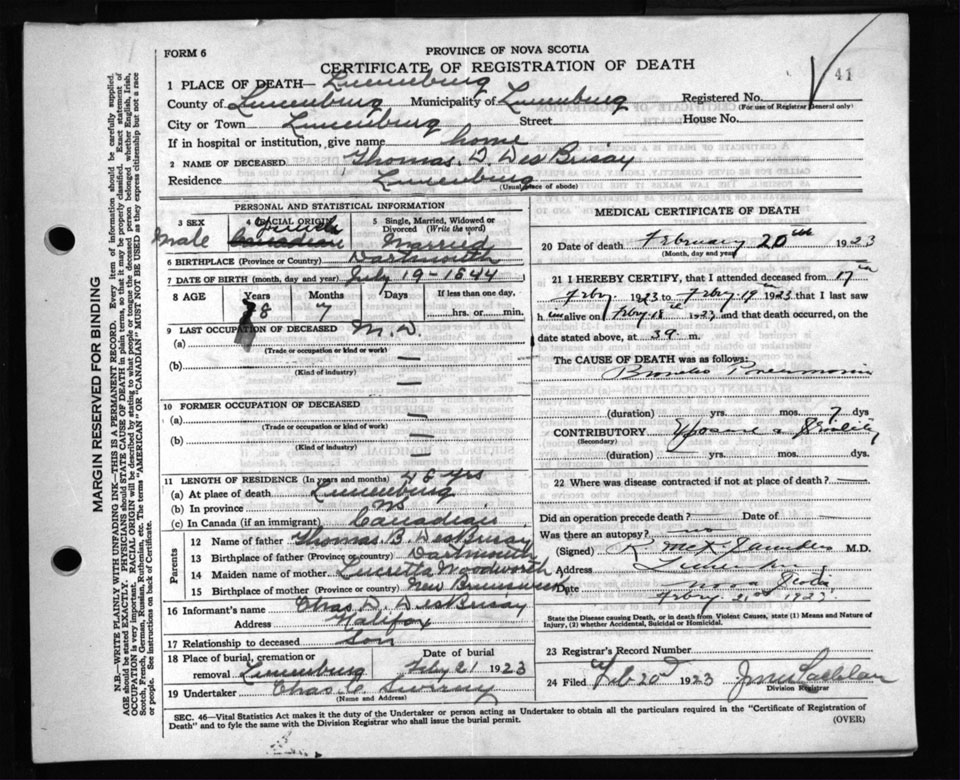 FORM 6
PROVINCE OF NOVA SCOTIA
CERTIFICATE OF REGISTRATION OF DEATH
41
1 PLACE OF DEATH— Lunenburg
County of Lunenburg Municipality of Lunenburg Registered No.
(For use of Registrar General only)
City or Town Lunenburg Street House No.
If in hospital or institution, give name home
2 NAME OF DECEASED Thomas. D. DesBrisay
Residence Lunenburg
(Usual place of abode)
PERSONAL AND STATISTICAL INFORMATION
3 SEX 4 RACIAL ORIGIN 5 Single, Married, Widowed or Divorced (Write the word)
Male French Canadian Married
6 BIRTHPLACE (Province or Country) Dartmouth
7 DATE OF BIRTH (month, day and year) July 19-1844
8 AGE Years Months Days If less than one day,
78 7 hrs. or min.
9 LAST OCCUPATION OF DECEASED M.D
(a)
(Trade or occupation or kind or work)
(b) —
(Kind of industry)
—
10 FORMER OCCUPATION OF DECEASED
(a) —
(Trade or occupation or kind of work)
(b) —
(Kind of industry)
—
11 LENGTH OF RESIDENCE (In years and months) 48 yrs
(a) At place of death Lunenburg
(b) In province NS
(c) In Canada (if an immigrant) Canadian
Parents
12 Name of father Thomas B. DesBrisay
13 Birthplace of father (Province or country) Dartmouth
14 Maiden name of mother Lucretta Woodworth
15 Birthplace of mother (Province or country) New Brunswick
16 Informant's name Chas D. DesBrisay
Address Halifax
17 Relationship to deceased Son
18 Place of burial, cremation or removal Lunenburg Date of burial Feby 21 1923
19 Undertaker Chas C.
(Name and Address)
MEDICAL CERTIFICATE OF DEATH
20 Date of death February 20th 1923
(Month, day and year)
21 I HEREBY CERTIFY, that I attended deceased from 17th
Feby 1923 to Feby 19th 1923 that I last saw
him alive on Feby 18th 1923 and that death occurred, on
date stated above, at 3 a. m.
The CAUSE OF DEATH was as follows:
Broncho Pneumonia
(duration) yrs. mos. 7 dys
CONTRIBUTORY
(Secondary)
(duration) yrs. mos. dys.
22 Where was disease contracted if not at place of death?
Did an operation precede death? Date of
Was there an autopsy? no
(Signed) M.D.
Address Lunenburg
Nova Scotia
Date Feby 21st 1923
State the Disease causing Death, or in death from Violent Causes, state (1) Means and Nature of Injury, (2) whether Accidental, Suicidal or Homicidal.
23 Registrar's Record Number
24 Filed Feb 20th 1923
Division Registrar
SEC. 46—Vital Statistics Act makes it the duty of the Undertaker or person acting as Undertaker to obtain all the particulars required in the "Certificate of Registration of
Death" and to fyle the same with the Division Registrar who shall issue the burial permit.
(OVER)
MARGIN RESERVED FOR BINDING
N.B.—WRITE PLAINLY WITH UNFADING INK—THIS IS A PERMANENT RECORD. Every item of information should be carefully supplied.
AGE should be stated EXACTLY. PHYSICIANS should STATE CAUSE OF DEATH in plain terms, so that it may be properly classified. Exact statement of
OCCUPATION is very important. RACIAL ORIGIN will be described by stating to what people or tongue the deceased person belonged whether English, Irish,
Scotch, French, German, Russian, Ruthenian, etc. The terms "AMERICAN" OR "CANADIAN" MUST NOT BE USED as they express citizenship but not a race
or people. See instructions on back of Certificate.